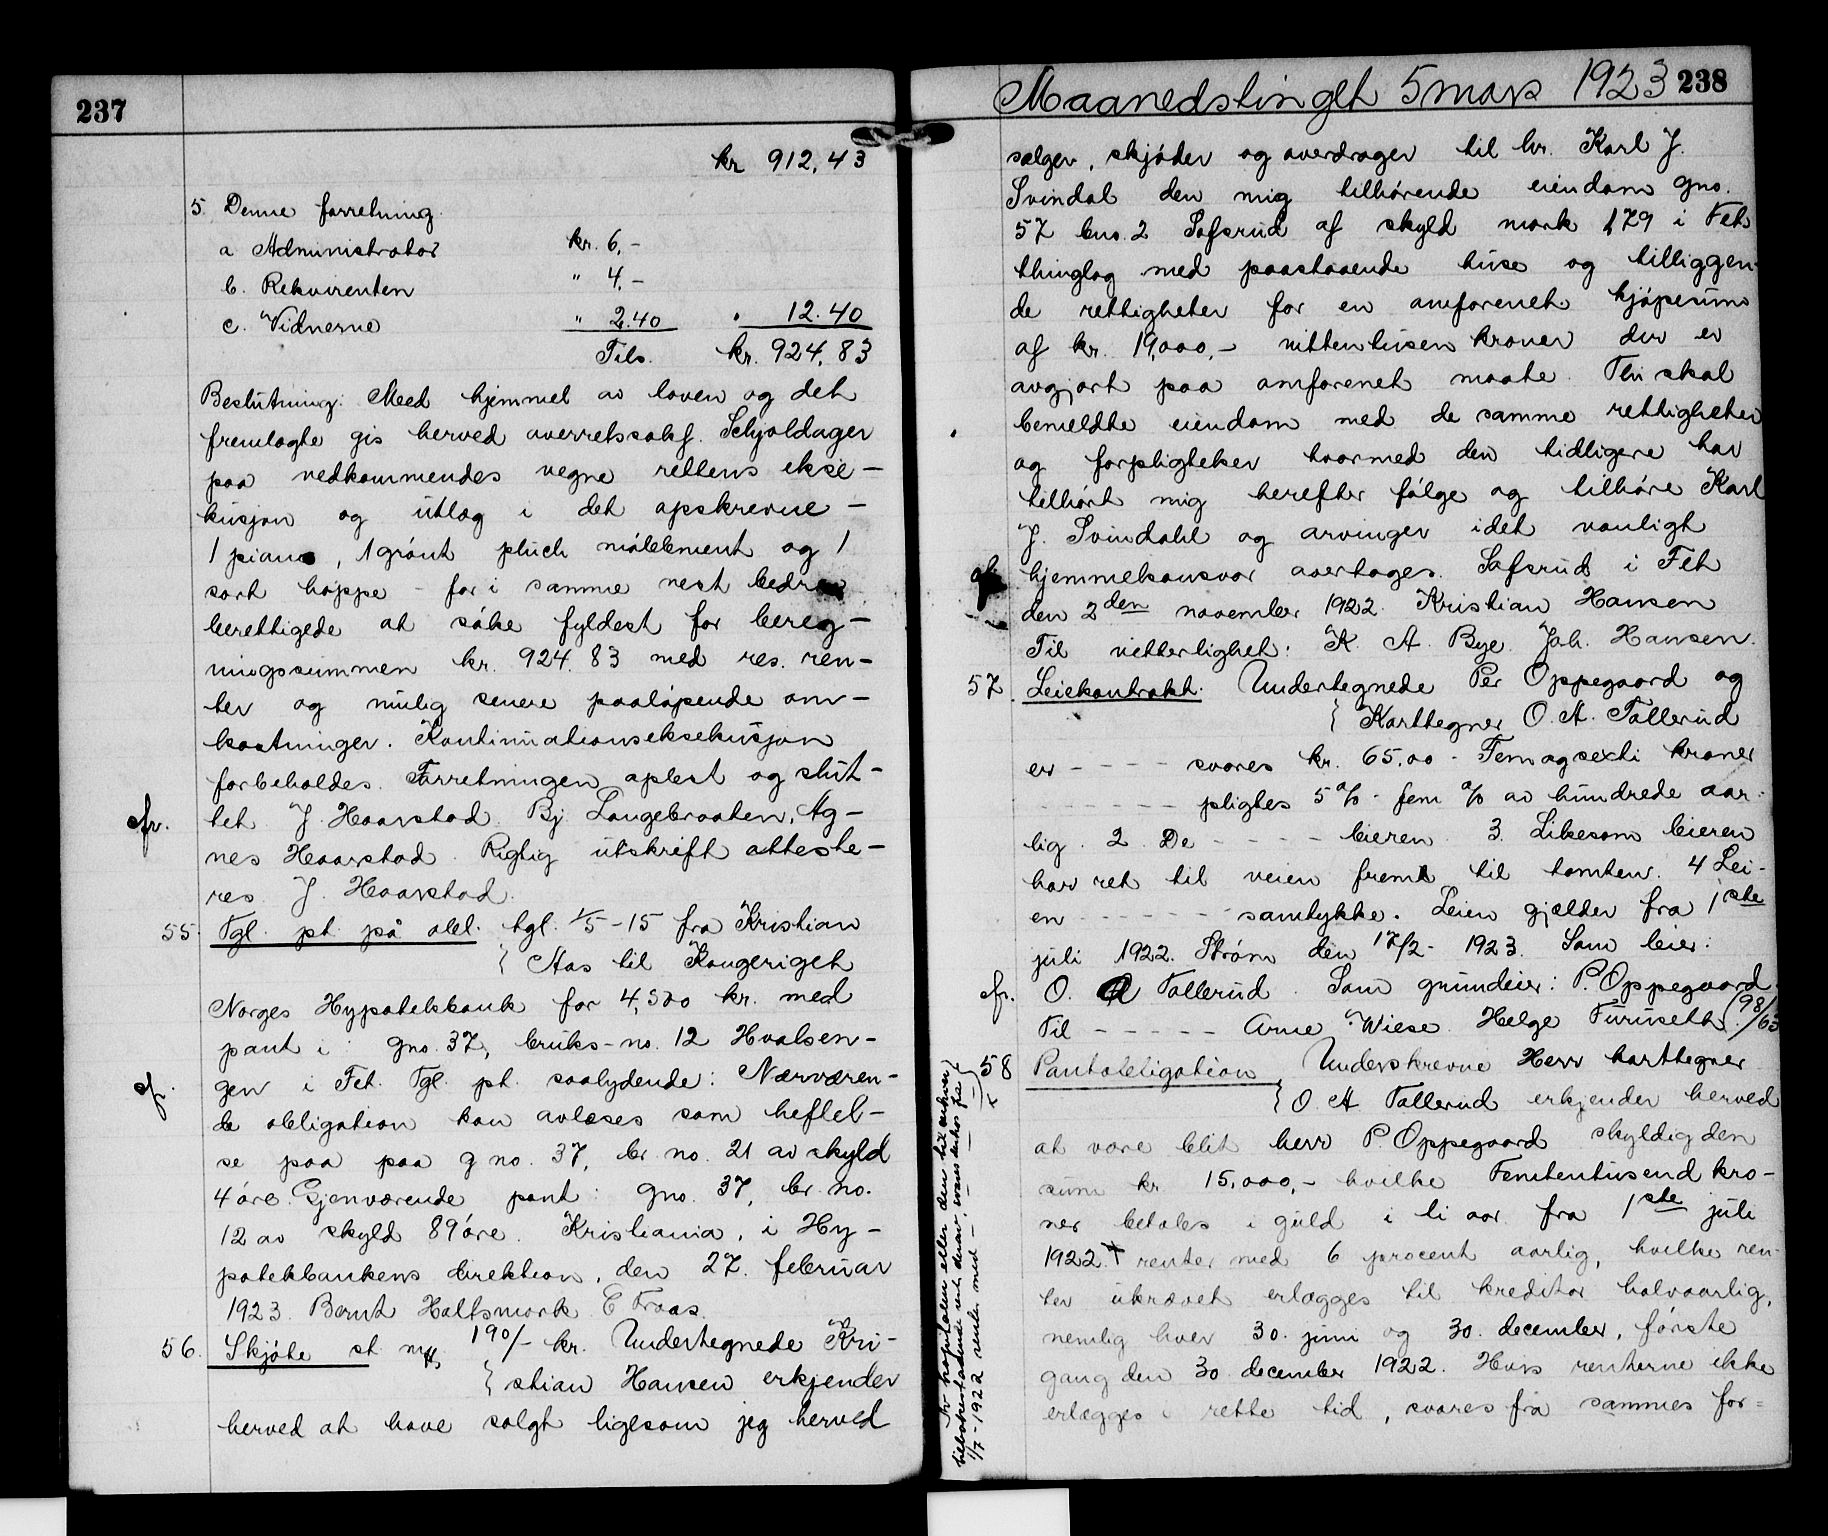 237
kr 912,43
5. Denne forretning.
a Administrator kr. 6,-
b. Rekvirenten " 4,-
c. Vidnerne " 2.40 " 12.40
Tils. kr. 924,83
Beslutning: Med hjemmel av loven og det
fremlagte gis herved overretssakf. Schjoldager
paa vedkommendes vegne rettens ekse-
kusjon og utlæg i det opskrevne -
1 piano, 1 grönt plúch möblement og 1
sort hoppe - for i samme nest bedre
berettigede at söke fyldest for bereg-
ningssummen kr. 924.83 med res. ren-
ter og mulig senere paalöpende om-
kostninger. Kontinuationseksekusjon
forbeholdes. Forretningen oplest og slut-
cfr. tet J. Haarstad. Bj Langebraaten, Ag-
nes Haarstad. Rigtig utskrift atteste-
res J. Haarstad.
55. Tgl. pt. på obl. tgl. 1/5-15 fra Kristian
Aas til Kongeriget
Norges Hypotekbank for 4,500 kr. med
pant i: gno. 37, bruks-no. 12 Hvalsen-
cfr. gen i Fet. Tgl. pt. saalydende: Nærværen-
de obligation kan avløses som heftel-
se paa paa g no. 37, br. no. 21 av skyld
4 öre. Gjenværende pant: gno. 37, br. no.
12 av skyld 89 öre. Kristiania, i Hy-
potekbankens direktion, den 27. februar
1923. Bernt Holtsmark. C Traas.
56. Skjöte st. m/ 190/- kr. Undertegnede Kri-
stian Hansen erkjender
herved at have solgt ligesom jeg herved
Maanedstinget 5 mars 1923 238
sælger, skjöder og overdrager til hr. Karl J.
Svindal den mig tilhörende eiendom gno.
57 bno. 2 Lofsrud af skyld mark 1 79 i Fet
thinglag med paastaaende huse og tilliggen-
de rettigheter for en omforenet kjöpesum
af kr. 19,000,- nittentusen kroner der er
avgjort paa omforenet maate. Thi skal
bemeldte eiendom med de samme rettigheter
og forpligtelser hvormed den tidligere har
tilhört mig herefter fölge og tilhöre Karl
J. Svindahl og arvinger idet vanligt
hjemmelsansvar overtages. Lofsrud i Fet
den 2den november 1922. Kristian Hansen
Til vitterlighet: K. A. Bye. Joh. Hansen.
57. Leiekontrakt. Undertegnede Per Oppegaard og
Karttegner O. A. Tollerud
er - - - - svares kr. 65,00 - Femogsexti kroner
- - - - - - - pligtes 5 % - fem % av hundrede aar-
lig. 2. De - - - - leieren. 3. Likesom leieren
har ret til veien frem til tomten. 4 Lei-
en - - - - - - - samtykke. Leien gjælder fra 1ste
juli 1922. Strøm den 17/2- 1923. Som leier:
cfr. O. A Tollerud. Som grundeier: P. Oppegaard.
Til - - - - - Arne Wiese. Helge Furuseth. (98/63
58 Pantobligation Underskrevne Herr karttegner
O. A Tollerud erkjender herved
at være blit herr P. Oppegaard skyldig den
sum kr. 15,000,- hvilke Femtentusend kro-
ner betales i guld i ti aar fra 1ste juli
1922. renter med 6 procent aarlig, hvilke ren-
ter ukrævet erlægges til kreditor halvaarlig,
nemlig hver 30. juni og 30. december, förste
gang den 30 december 1922. Hvis renterne ikke
erlægges i rette tid, svares fra sammes for=
Av kapitalen eller den til enhver
tid tilbakestaaende rest derav, svares derhos fra
1/7-1922 renter med -